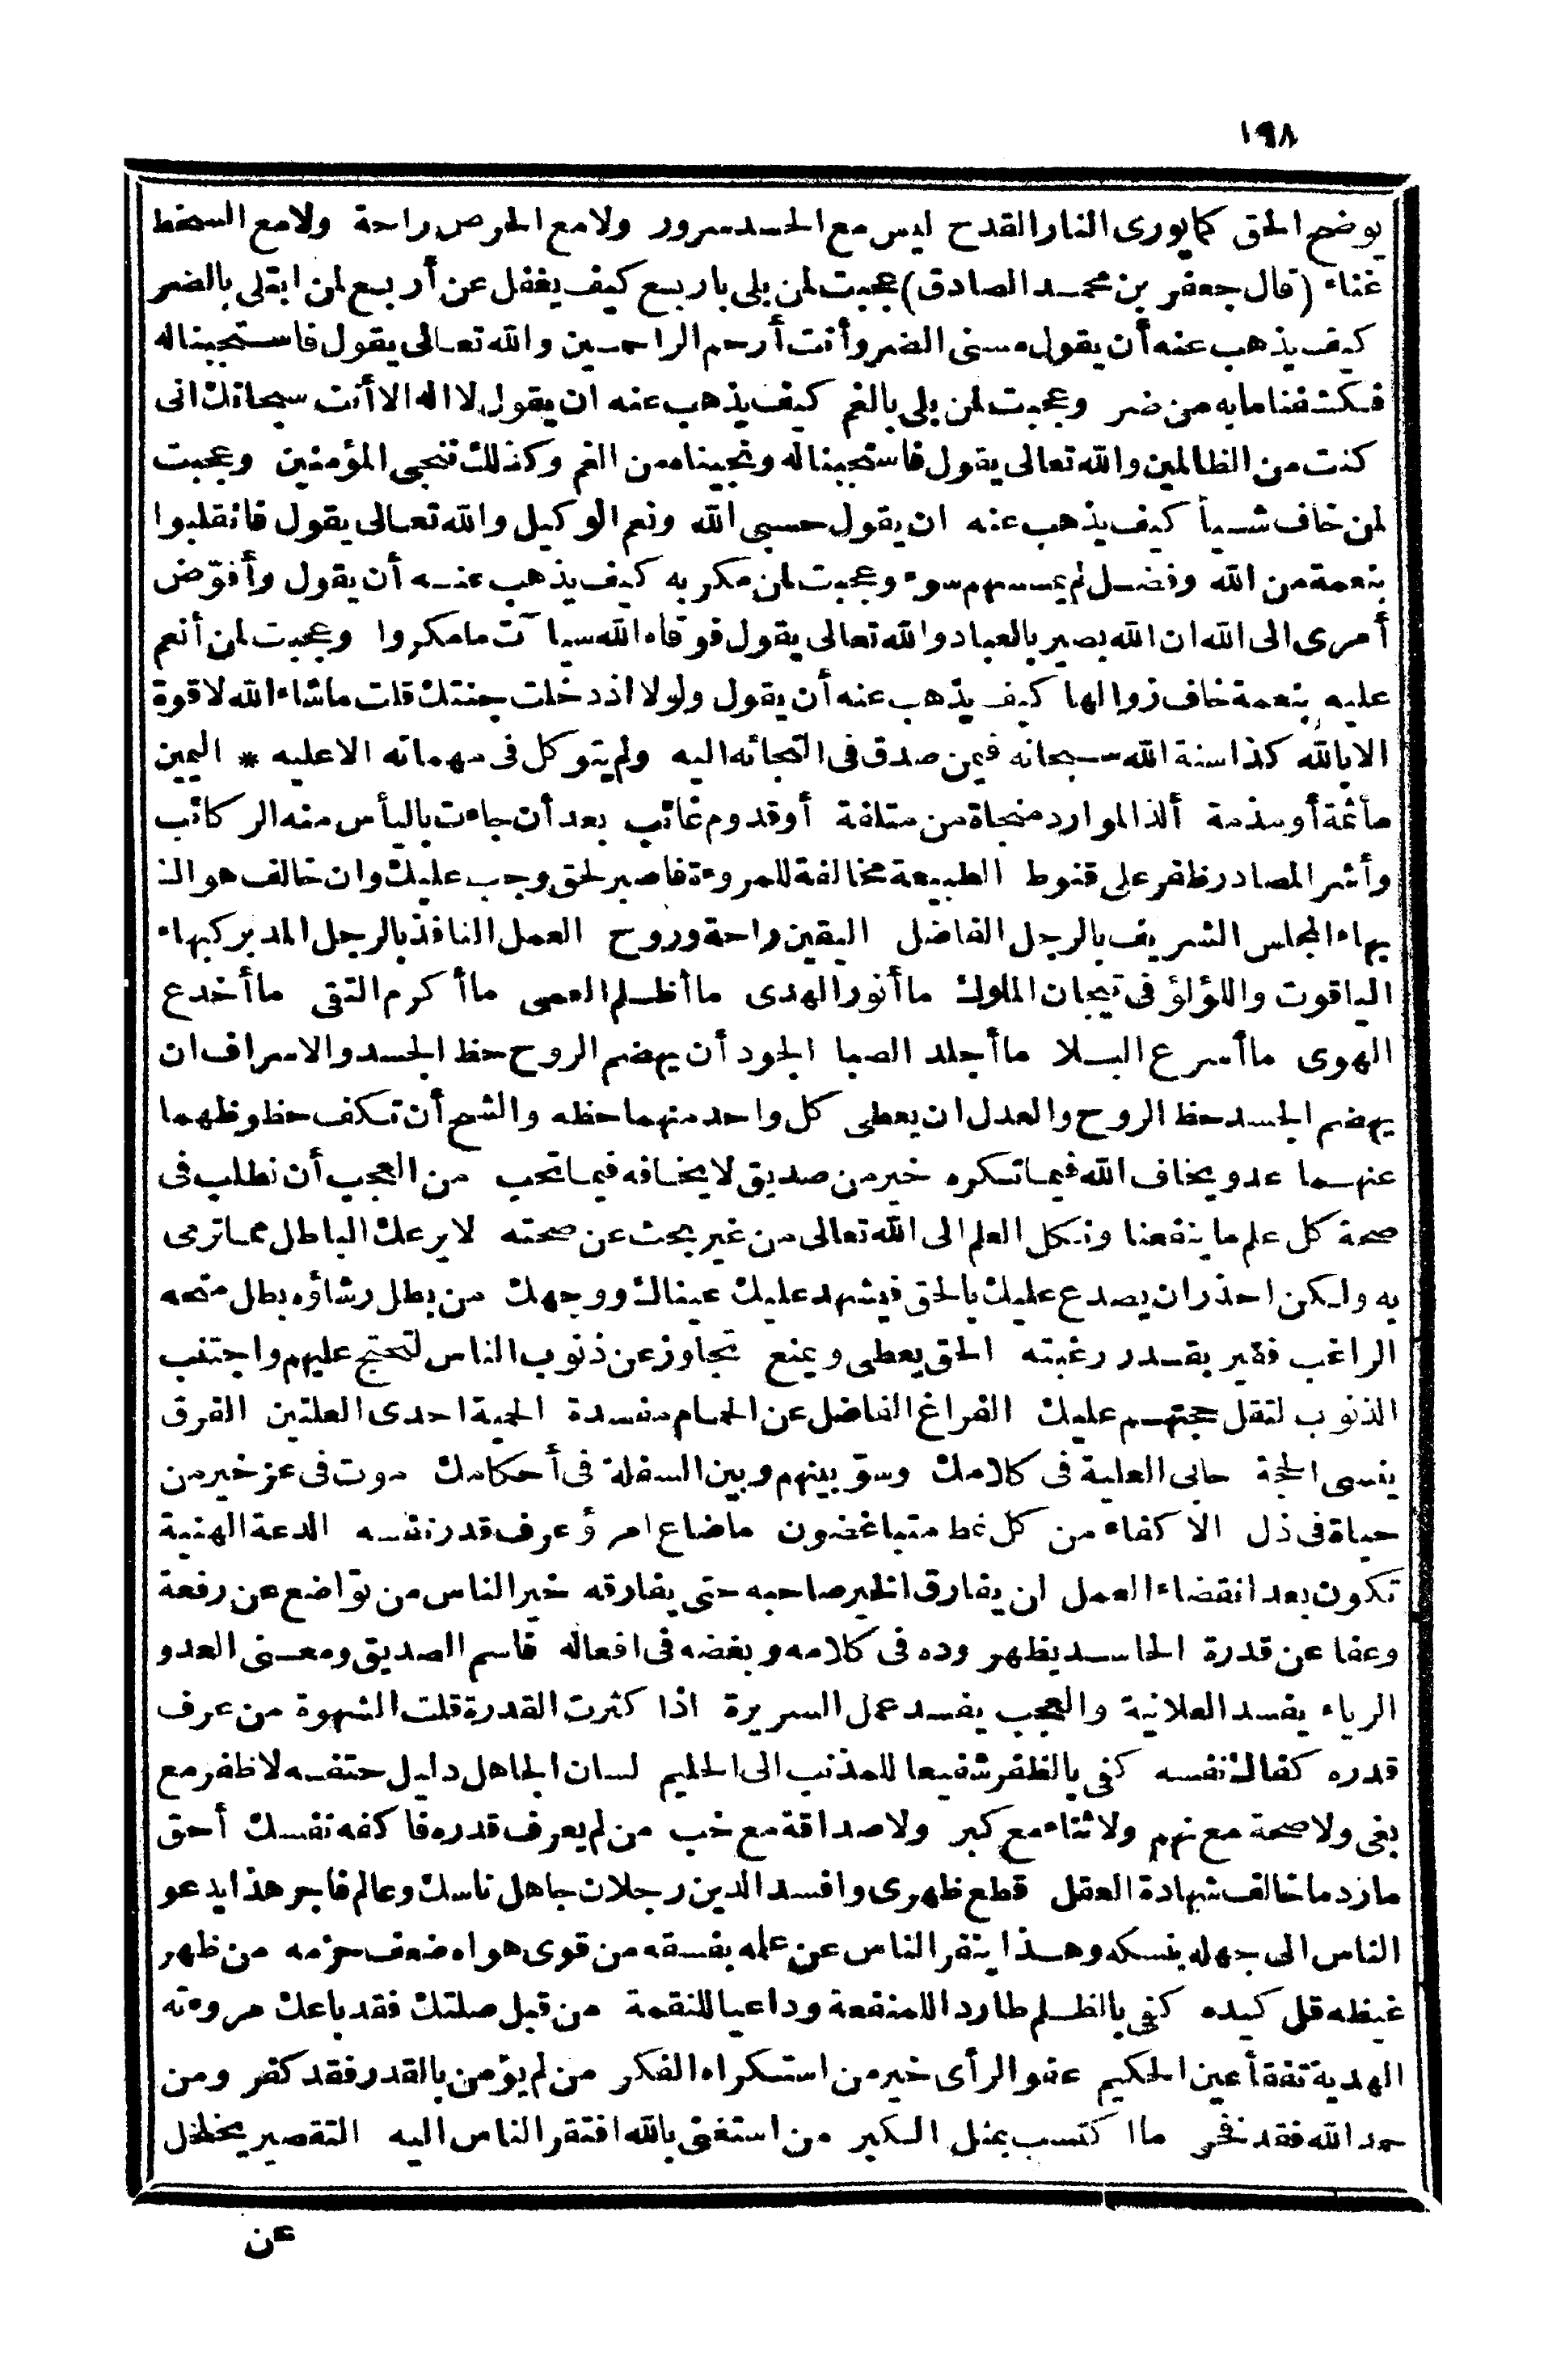 ١٩٨
يوضح الحق كما يورى النار القدح ليس مع الحسد سرور ولا مع الحرص راحة ولا مع السخط
غناء (قال جعفر بن محمد الصادق) عجبت لمن بلى باربع كيف يغفل عن أربع لمن ابتلى بالضر
كيف يذهب عنه أن يقول مسنى الضر وأنت أرحم الراحمين والله تعالى يقول فاستجبنا له
فكشفنا ما به من ضر وعجبت لمن بلى بالغم كيف يذهب عنه ان يقول لا اله الا أنت سبحانك انى
كنت من الظالمين والله تعالى يقول فاستجبنا له ونجيناه من الغم وكذلك ننجى المؤمنين وعجبت
لمن خاف شيأ كيف يذهب عنه ان يقول حسبى الله ونعم الوكيل والله تعالى يقول فانقلبوا
بنعمة من الله وفضل لم يمسسهم سوء وعجبت لمن مكر به كيف يذهب عنه أن يقول وأفوّض
أمرى الى الله ان الله بصير بالعباد والله تعالى يقول فوقاه الله سيآت ما مكروا وعجبت لمن أنعم
عليه بنعمة خاف زوالها كيف يذهب عنه أن يقول ولولا اذ دخلت جنتك قلت ما شاء الله لا قوة
الا بالله كذا سنة الله سبحانه فيمن صدق فى التجائه اليه ولم يتوكل فى مهماته الا عليه * اليمين
مأثمة أو مندمة ألذ الموارد منجاة من متلفة أو قدوم غائب بعد أن جاءت باليأس منه الركائب
وأشر المصادر ظفر على قنوط الطبيعة مخالفة للمروءة فاصبر لحق وجب عليك وان خالف هواك
بهاء المجلس الشريف بالرجل الفاضل اليقين راحة وروح العمل النافذ بالرجل المدبر كبهاء
الياقوت واللؤلؤ فى تيجان الملوك ما أنور الهدى ما أظلم العمى ما أكرم التقى ما أخدع
الهوى ما أسرع البلا ما أجلد الصبا الجود أن يهضم الروح حظ الجسد والاسراف ان
يهضم الجسد حظ الروح والعدل ان يعطى كل واحد منهما حظه والشح أن تكف حظوظهما
عنهما عدو يخاف الله فيما تكره خير من صديق لا يخافه فيما تحب من العجب أن نطلب فى
صحة كل علم ما ينفعنا ونكل العلم الى الله تعالى من غير بحث عن صحته لا يرعك الباطل مما ترمى
به ولكن احذر ان يصدع عليك بالحق فيشهد عليك عيناك ووجهك من بطل رشاؤه بطل متحه
الراغب فقير بقدر رغبته الحق يعطى ويمنع تجاوز عن ذنوب الناس لتحتج عليهم واجتنب
الذنوب لتقل حجتهم عليك الفراغ الفاضل عن الجمام مفسدة الحمية احدى العلتين الفرق
ينسى الحجة حابى العلية فى كلامك وسوّ بينهم وبين السفلة فى أحكامك موت فى عز خير من
حياة فى ذل الاكفاء من كل نمط متباغضون ما ضاع امرؤ عرف قدر نفسه الدعة الهنية
تكون بعد انقضاء العمل لن يفارق الخير صاحبه حتى يفارقه خير الناس من تواضع عن رفعة
وعفا عن قدرة الحاسد يظهر وده فى كلامه وبغضه فى افعاله فاسم الصديق ومعنى العدو
الرياء يفسد العلانية والعجب يفسد عمل السريرة اذا كثرت القدرة قلت الشهوة من عرف
قدره كفاك نفسه كفى بالظفر شفيعا للمذنب الى الحليم لسان الجاهل دليل حتفه لا ظفر مع
بغى ولا صحة مع نهم ولا ثناء مع كبر ولا صداقة مع خب من لم يعرف قدره فاكفه نفسك أحق
ما زد ما خالف شهادة العقل قطع ظهرى وافسد الدين رجلان جاهل ناسك وعالم فاجر هذا يدعو
الناس الى جهله بنسكه وهذا ينفر الناس عن علمه بفسقه من قوى هواه ضعف حزمه من ظهر
غيظه قل كيده كفى بالظلم طاردا للمنفعة وداعيا للنقمة من قبل صلتك فقد باعك مروءته
الهدية تفقأ عين الحكيم عفو الرأى خير من استكراه الفكر من لم يؤمن بالقدر فقد كفر ومن
حمد الله فقد فخر ما اكتسب بمثل الكبر من استغنى بالله افتقر الناس اليه التقصير يخلخل
عن